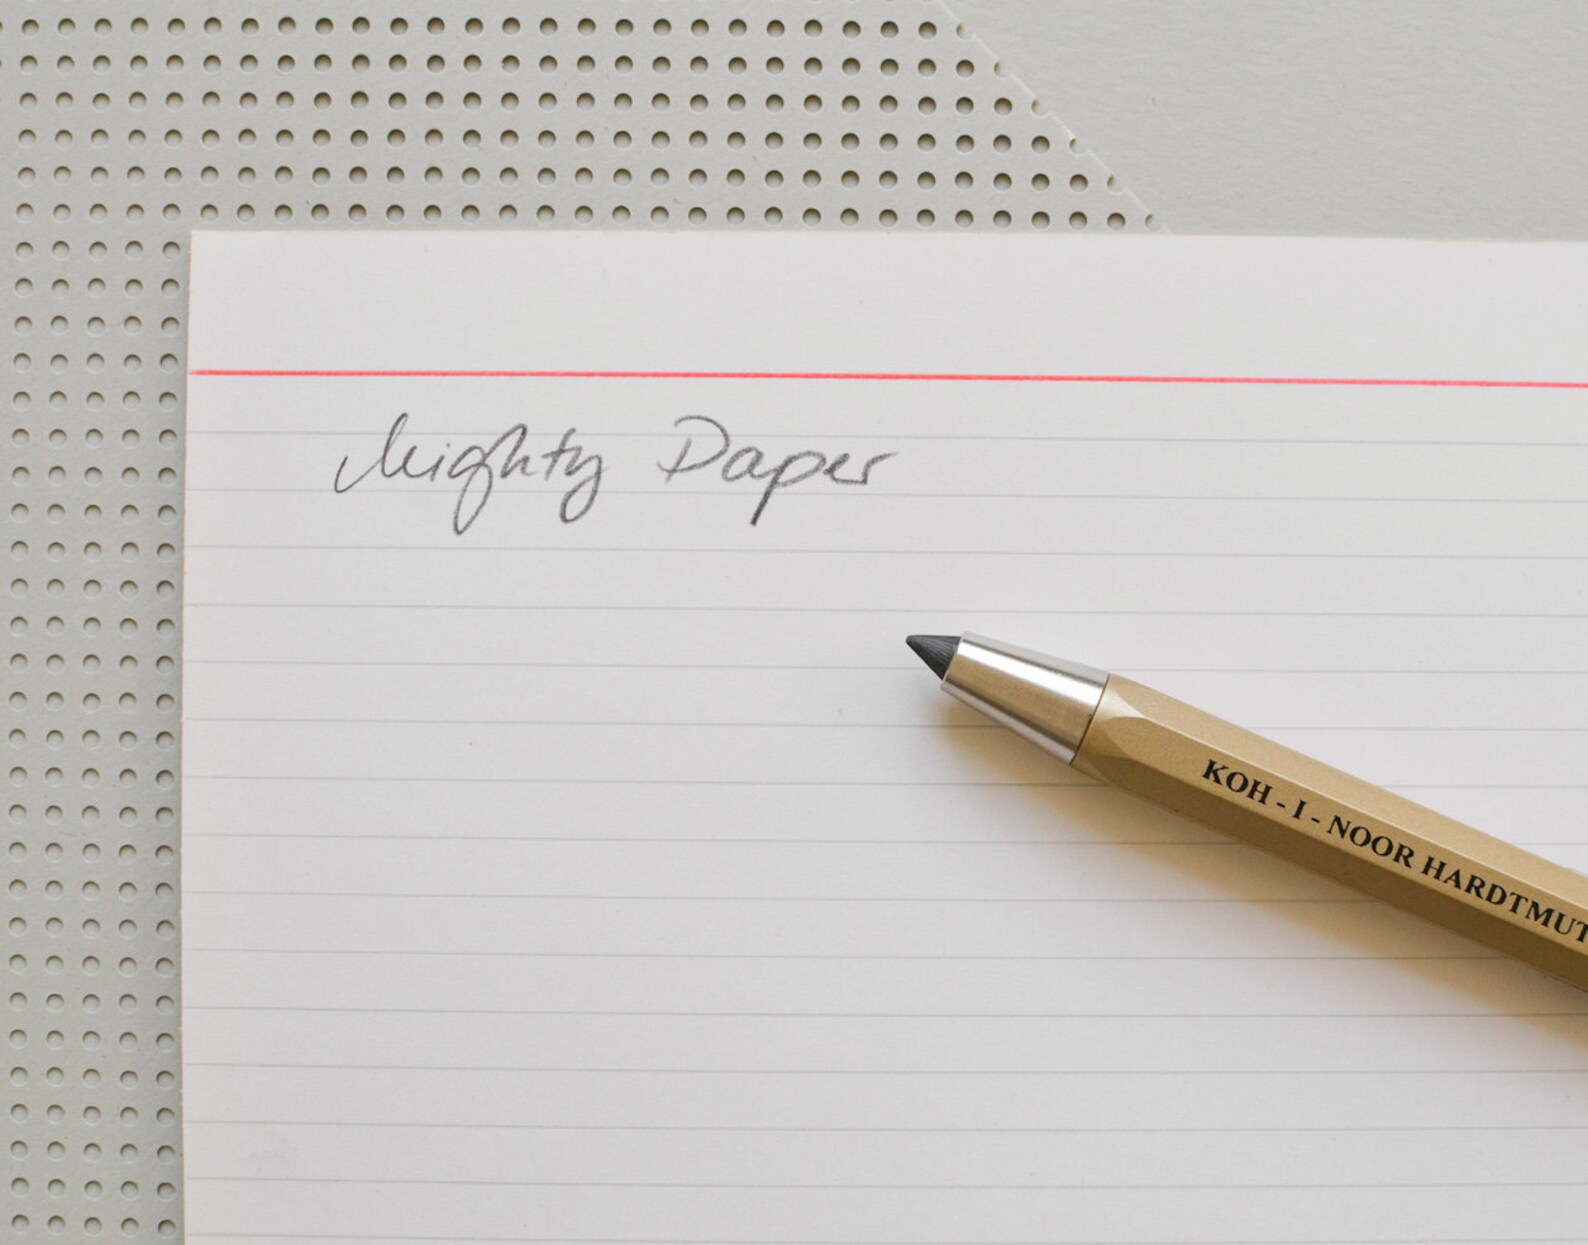 Mighty Paper
KOH - I - NOOR HARDTMUT